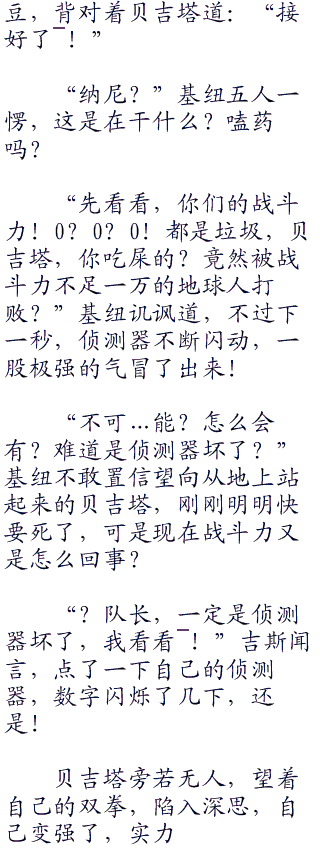 豆，背对着贝吉塔道：“接
好了¯！”
“纳尼？”基纽五人一
愣，这是在干什么？嗑药
吗？
“先看看，你们的战斗
力！0？0？0！都是垃圾，贝
吉塔，你吃屎的？竟然被战
斗力不足一万的地球人打
败？”基纽讥讽道，不过下
一秒，侦测器不断闪动，一
股极强的气冒了出来！
“不可…能？怎么会
有？难道是侦测器坏了？”
基纽不敢置信望向从地上站
起来的贝吉塔，刚刚明明快
要死了，可是现在战斗力又
是怎么回事？
“？队长，一定是侦测
器坏了，我看看¯！”吉斯闻
言，点了一下自己的侦测
器，数字闪烁了几下，还
是！
贝吉塔旁若无人，望着
自己的双拳，陷入深思，自
己变强了，实力